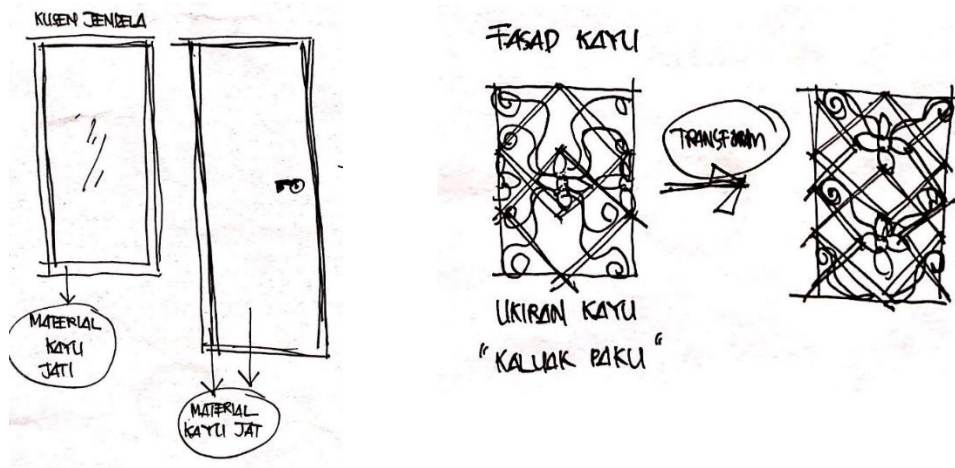 KUSEN JENDELA
MATERIAL
KAYU
JATI
MATERIAL
KAYU JAT
FASAD KAYU
TRANSFORM
UKIRAN KAYU
"KALUAK PAKU"